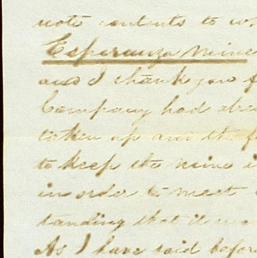 note contents to w
Esperanza mine
and I thank you f
Company had alre
taken up and the f
to keep the mine i
in order to meet
standing that it was
As I have said before